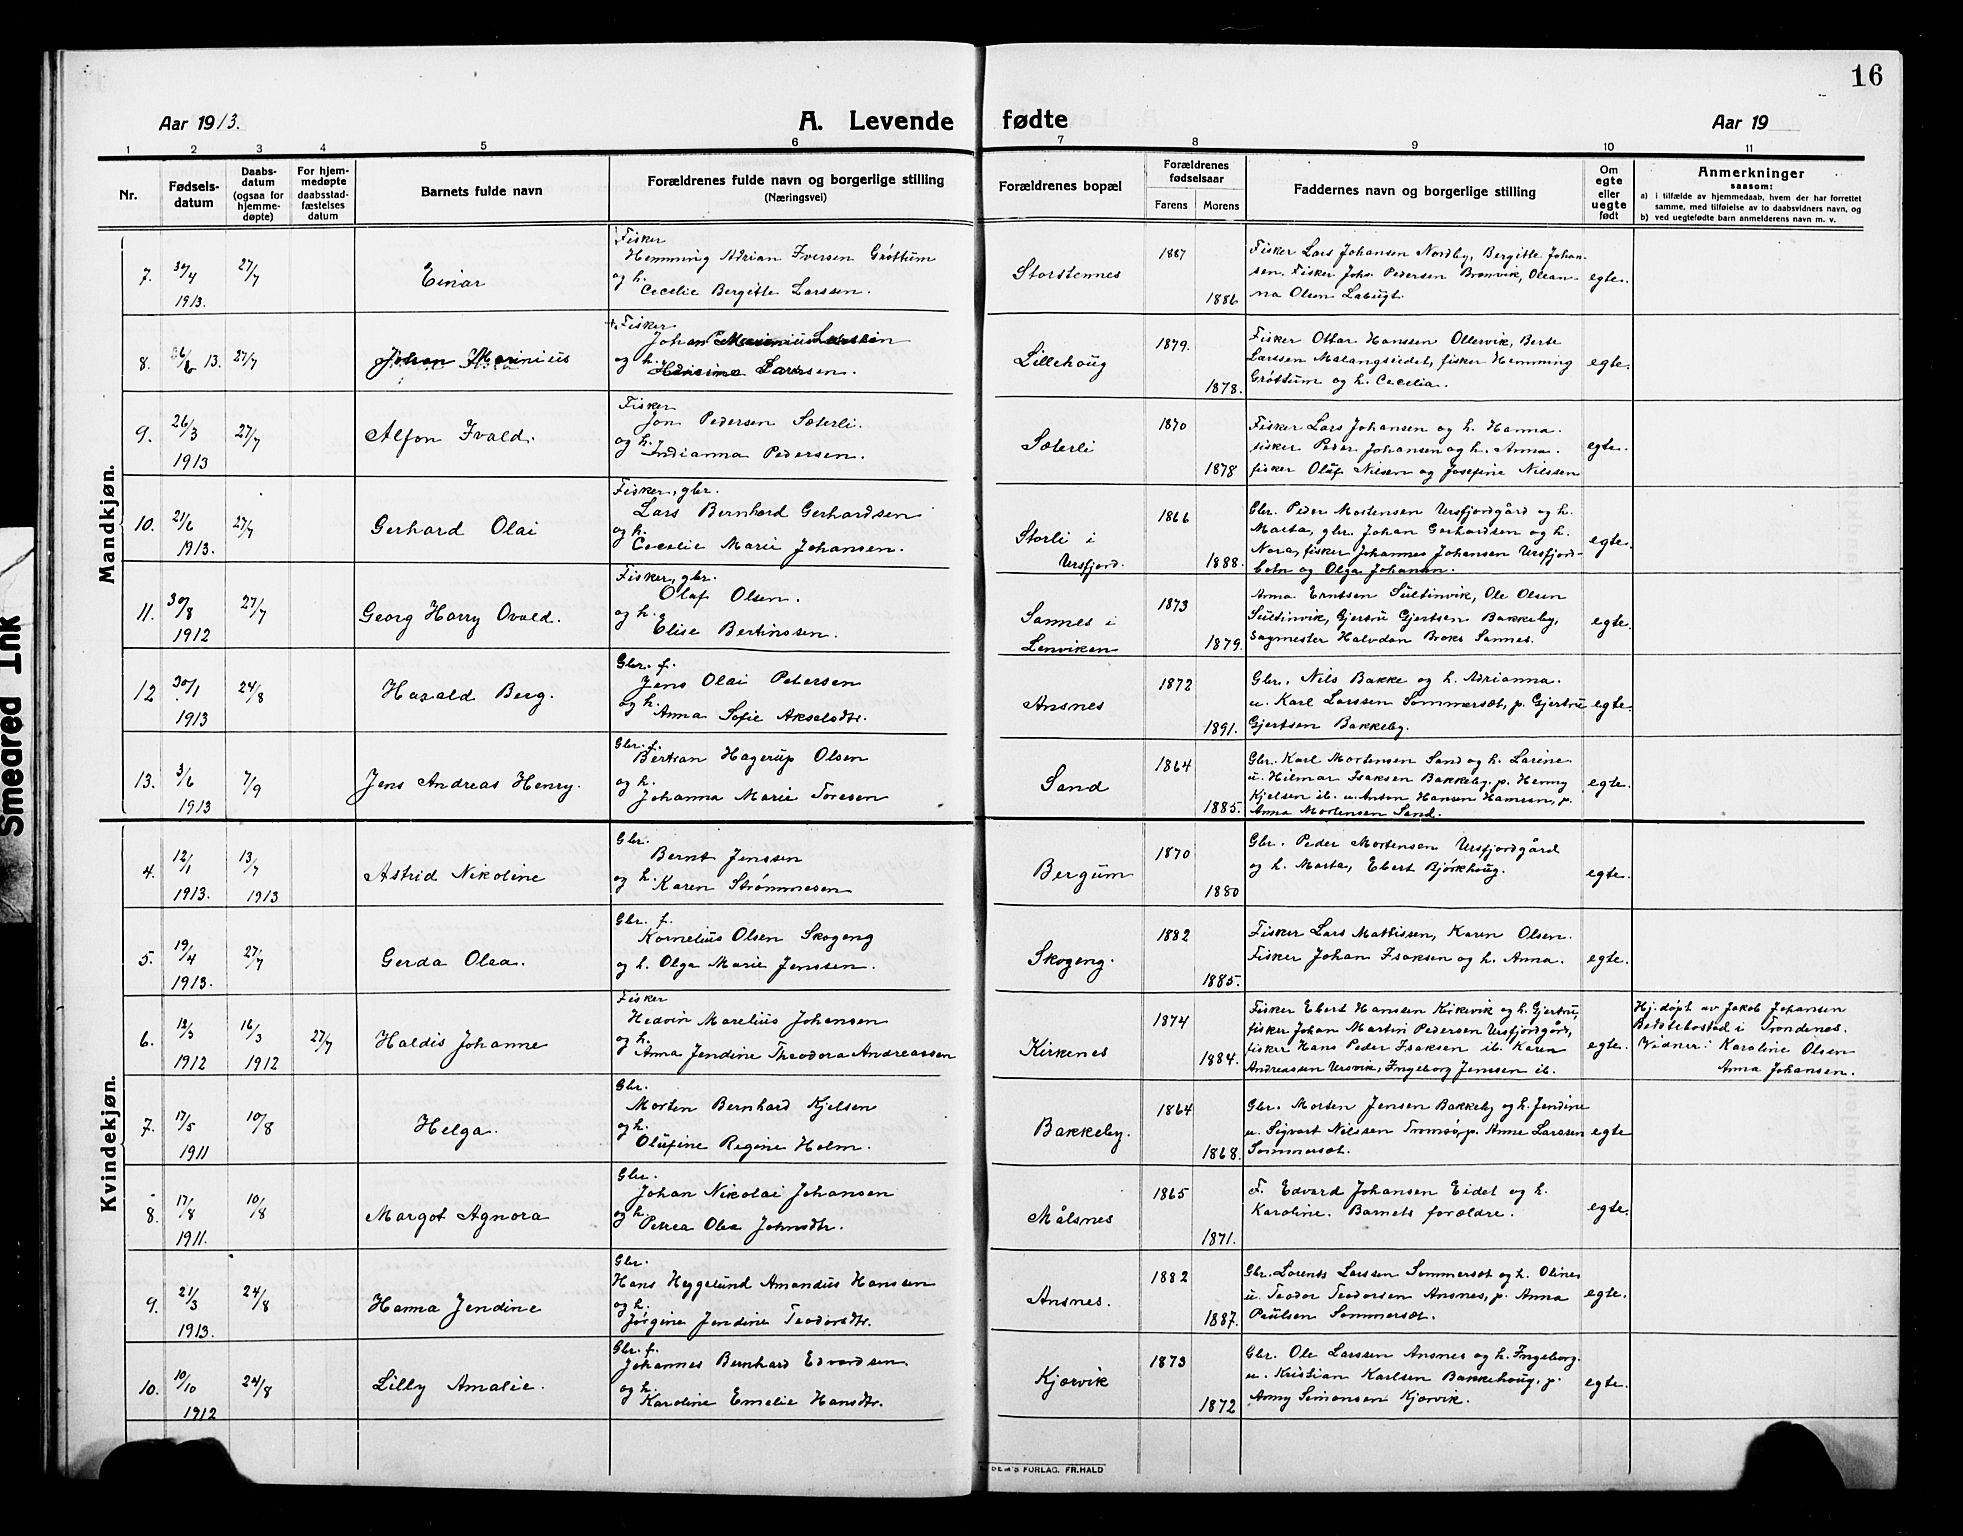 16
Aar 1913.
A. Levende fødte
Aar 19
1 2 3 4 5 6 7 8 9 10 11
Nr.
Fødsels-
datum
Daabs-
datum
(ogsaa for
hjemme-
døpte)
For hjem-
medøpte
daabsstad-
fæstelses
datum
Barnets fulde navn
Forældrenes fulde navn og borgerlige stilling
(Næringsvei)
Forældrenes bopæl
Forældrenes
fødselsaar
Farens Morens
Faddernes navn og borgerlige stilling
Om
egte
eller
uegte
født
Anmerkninger
saasom:
a) i tilfælde av hjemmedaab, hvem der har forrettet
samme, med tilføielse av to daabsvidners navn, og
b) ved uegtefødte barn anmelderens navn m. v.
Mandkjøn.
7. 30/4 1913. 27/7
Einar
Fisker
Hemming Adrian Iversen Grøttum
og h.
Cecelie Bergitte Larssen.
Storstennes
1887
1886
Fisker Lars Johansen Nordby, Bergitte Johan-
sen. Fisker Johs. Pedersen Brenvik, Olean-
na Olsen Labugt.
egte.
8. 26/6 13. 27/7
Johan Marinius
Fisker
Johan
og h.
Larssen.
Lillehoug
1879.
1878.
Fisker Ottar Hanssen Ollervik, Berte
Larssen Malangseidet, fisker Hemming
Grøttum og h. Cecelia.
egte.
9. 26/3 1913 27/7
Alfon Ivald.
Fisker
Jon Pedersen Sæterli.
og h.
Indianna Pedersen.
Sæterli
1870
1878
Fisker Lars Johansen og h. Hanna.
fisker Peder Johansen og h. Anna.
fisker Oluf Nilsen og Josefine Nilssen
egte.
10. 21/6 1913. 27/7
Gerhard Olai
Fisker, gbr.
Lars Bernhard Gerhardsen
og h.
Cecelie Marie Johansen.
Storli i
Ursfjord.
1866
1888.
Gbr. Peder Mortensen Ursfjordgård og h.
Marta, gbr. Johan Gerhardsen og h.
Nora, fisker Johannes Johansen Ursfjord-
botn og Olga Johansen.
egte.
11. 30/8 1912 27/7
Georg Harry Ovald.
Fisker, gbr.
Olaf Olsen.
og h.
Elise Bertinssen.
Sannes i
Lenviken
1873
1879.
Anna Erntsen Sultinvik, Ole Olsen
Sultinvik, Gjertru Gjertsen Bakkeby,
sagmester Halvdan Broks Sannes.
egte.
12 30/1 1913 24/8
Harald Berg.
Gbr. f.
Jens Olai Petersen
og h.
Anna Sofie Akselsdtr.
Ansnes
1872
1891.
Gbr. Nils Bakke og h. Adrianna.
u. Karl Larssen Sommersæt, p. Gjertru
Gjertsen Bakkeby.
egte.
13. 3/6 1913 7/9
Jens Andreas Henry.
Gbr. f.
Bertran Hagerup Olsen
og h.
Johanna Marie Toresen
Sand
1864
1885.
Gbr. Karl Mortensen Sand og h. Larine
u. Hilmar Isaksen Bakkeby, p. Henny
Kjelsen ib. u. Anton Hansen Hamsen, p.
Anna Mortensen Sand.
egte.
Kvindekjøn.
4. 12/1 1913. 13/7 1913
Astrid Nikoline
Gbr.
Bernt Jenssen
og h.
Karen Strømmesen
Bergum
1870
1880
Gbr. Peder Mortensen Ursfjordgård
og h. Marta, Ebert Bjørkhoug.
egte.
5. 19/4 1913. 27/7
Gerda Olea.
Gbr. f.
Kornelius Olsen Skogeng
og h. Olga Marie Jenssen.
Skogeng.
1882
1885.
Fisker Lars Mattissen, Karen Olsen.
Fisker Johan Isaksen og h. Anna.
egte.
6. 13/3 1912 16/3 1912 27/7
Haldis Johanne
Fisker
Hedvin Marelius Johansen
og h.
Anna Jendine Theodora Andreassen
Kirkenes
1874
1884.
Fisker Ebert Hansen Kirkevik og h. Gjertru,
fisker Johan Martin Pedersen Ursfjordgård,
fisker Hans Peder Isaksen ib. Karen
Andreassen Ursvik, Ingeborg Jenssen ib.
egte.
Hj. døpt av Jakob Johansen
i Trondenes.
Vidner: Karoline Olsen
Anna Johansen.
7. 17/5 1911 10/8
Helga.
Gbr.
Morten Bernhard Kjelsen
og h.
Olufine Regine Holm.
Bakkeby.
1864
1868.
Gbr. Morten Jensen Bakkeby og h. Jendine
u. Sigvart Nilssen Tromsø, p. Anne Larssen
Sommersæt.
egte
8. 17/8 1911. 10/8
Margot Agnora
Gbr.
Johan Nikolai Johansen
og h.
Petrea Olea Johnsdtr.
Målsnes
1865
1871.
F. Edvard Johansen Eidet og h.
Karoline. Barnets forældre.
egte.
9. 21/3 1913. 24/8
Hanna Jendine
Gbr.
Hans Heggelund Amandus Hanssen
og h.
Jørgine Jendine Teodorsdtr.
Ansnes.
1882
1887.
Gbr. Lorents Larssen Sommersæt og h. Oline,
u. Teodor Teodorsen Ansnes, p. Anna
Paulsen Sommersæt.
egte.
10. 10/10 1912 24/8
Lilly Amalie.
Gbr. f.
Johannes Bernhard Edvardsen
og h.
Karoline Emelie Hansdtr.
Kjærvik
1873
1872
Gbr. Ole Larssen Ansnes og h. Ingeborg.
u. Kristian Karlsen Bakkehoug, p.
Anny Simonsen Kjærvik.
egte.
DEM'S FORLAG, FR. HALD
Smeared Ink